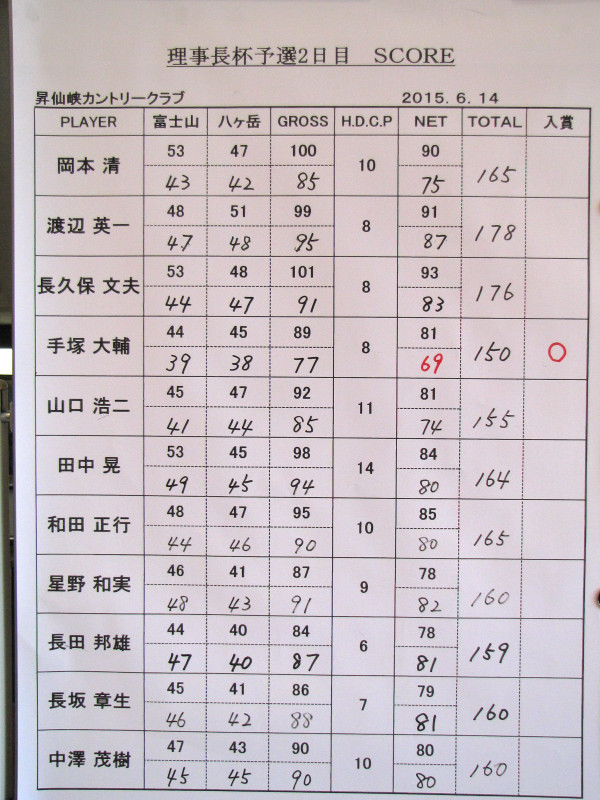 理事長杯予選2日目 SCORE
昇仙峡カントリークラブ 2015. 6. 14
PLAYER 富士山 八ヶ岳 GROSS H.D.C.P NET TOTAL 入賞
岡本 清 53 47 100 10 90 165
43 42 85 75
渡辺 英一 48 51 99 8 91 178
47 48 95 87
長久保 文夫 53 48 101 8 93 176
44 47 91 83
手塚 大輔 44 45 89 8 81 150 ○
39 38 77 69
山口 浩二 45 47 92 11 81 155
41 44 85 74
田中 晃 53 45 98 14 84 164
49 45 94 80
和田 正行 48 47 95 10 85 165
44 46 90 80
星野 和実 46 41 87 9 78 160
48 43 91 82
長田 邦雄 44 40 84 6 78 159
47 40 87 81
長坂 章生 45 41 86 7 79 160
46 42 88 81
中澤 茂樹 47 43 90 10 80 160
45 45 90 80